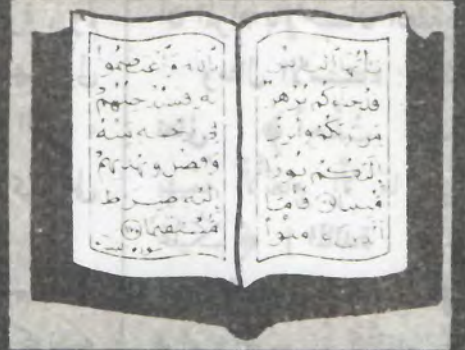 يَٰٓأَيُّهَا ٱلنَّاسُ
قَدْ جَآءَكُم بُرْهَٰنٌ
مِّن رَّبِّكُمْ وَأَنزَلْنَآ
إِلَيْكُمْ نُورًا
مُّبِينًا فَأَمَّا
ٱلَّذِينَ ءَامَنُوا۟
بِٱللَّهِ وَٱعْتَصَمُوا۟
بِهِۦ فَسَيُدْخِلُهُمْ
فِى رَحْمَةٍ مِّنْهُ
وَفَضْلٍ وَيَهْدِيهِمْ
إِلَيْهِ صِرَٰطًا
مُّسْتَقِيمًا ١٧٥
سورة النساء